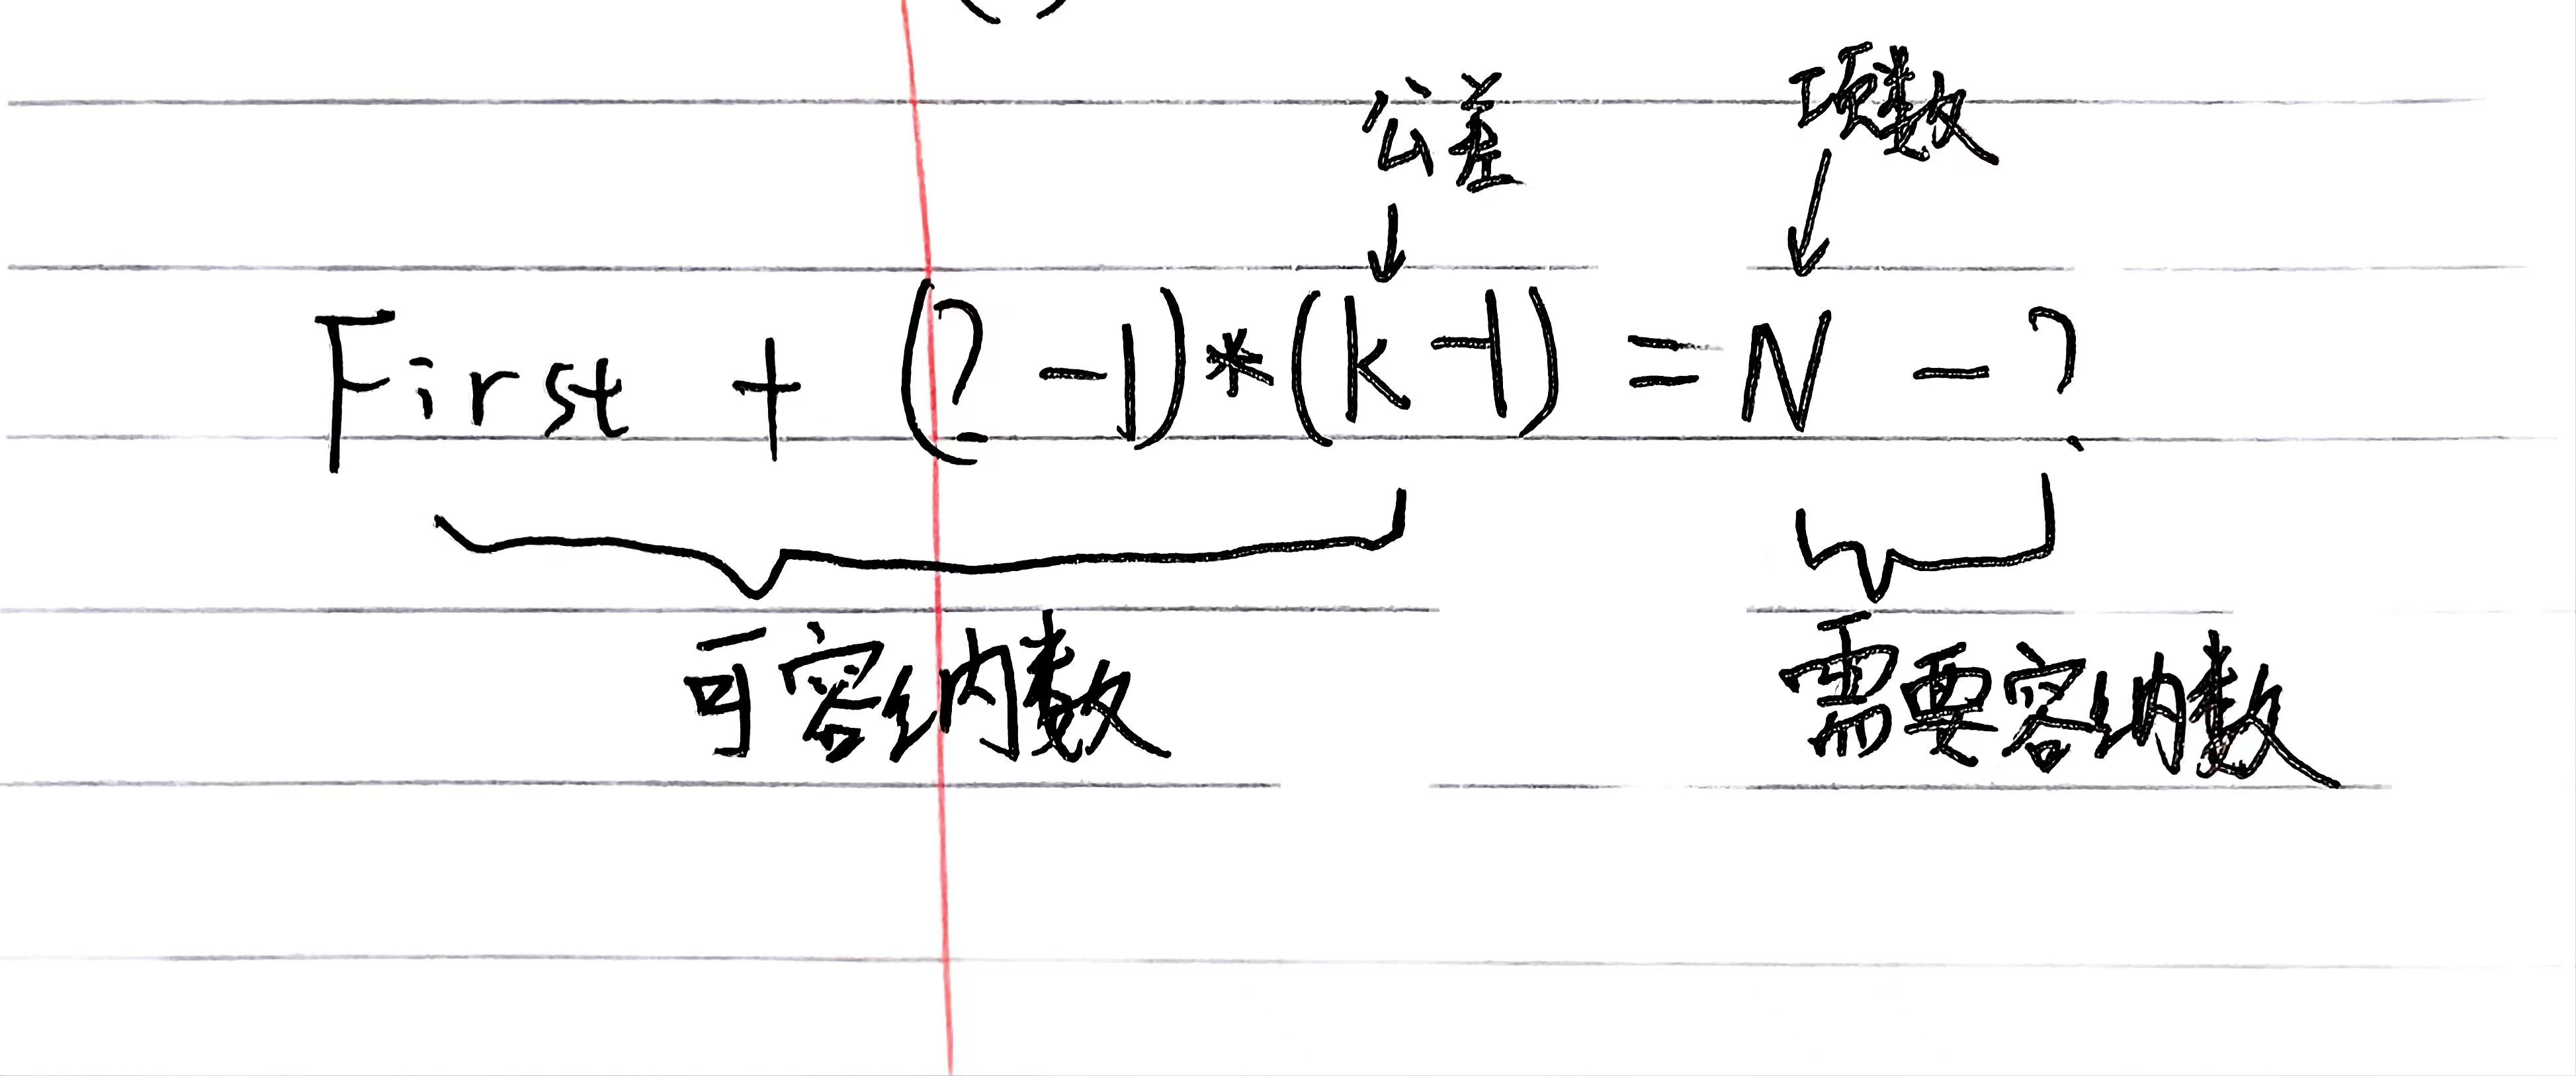 公差 项数
↓ ↓
First + (? -1)*(k-1) = N - ?
可容纳数 需要容纳数